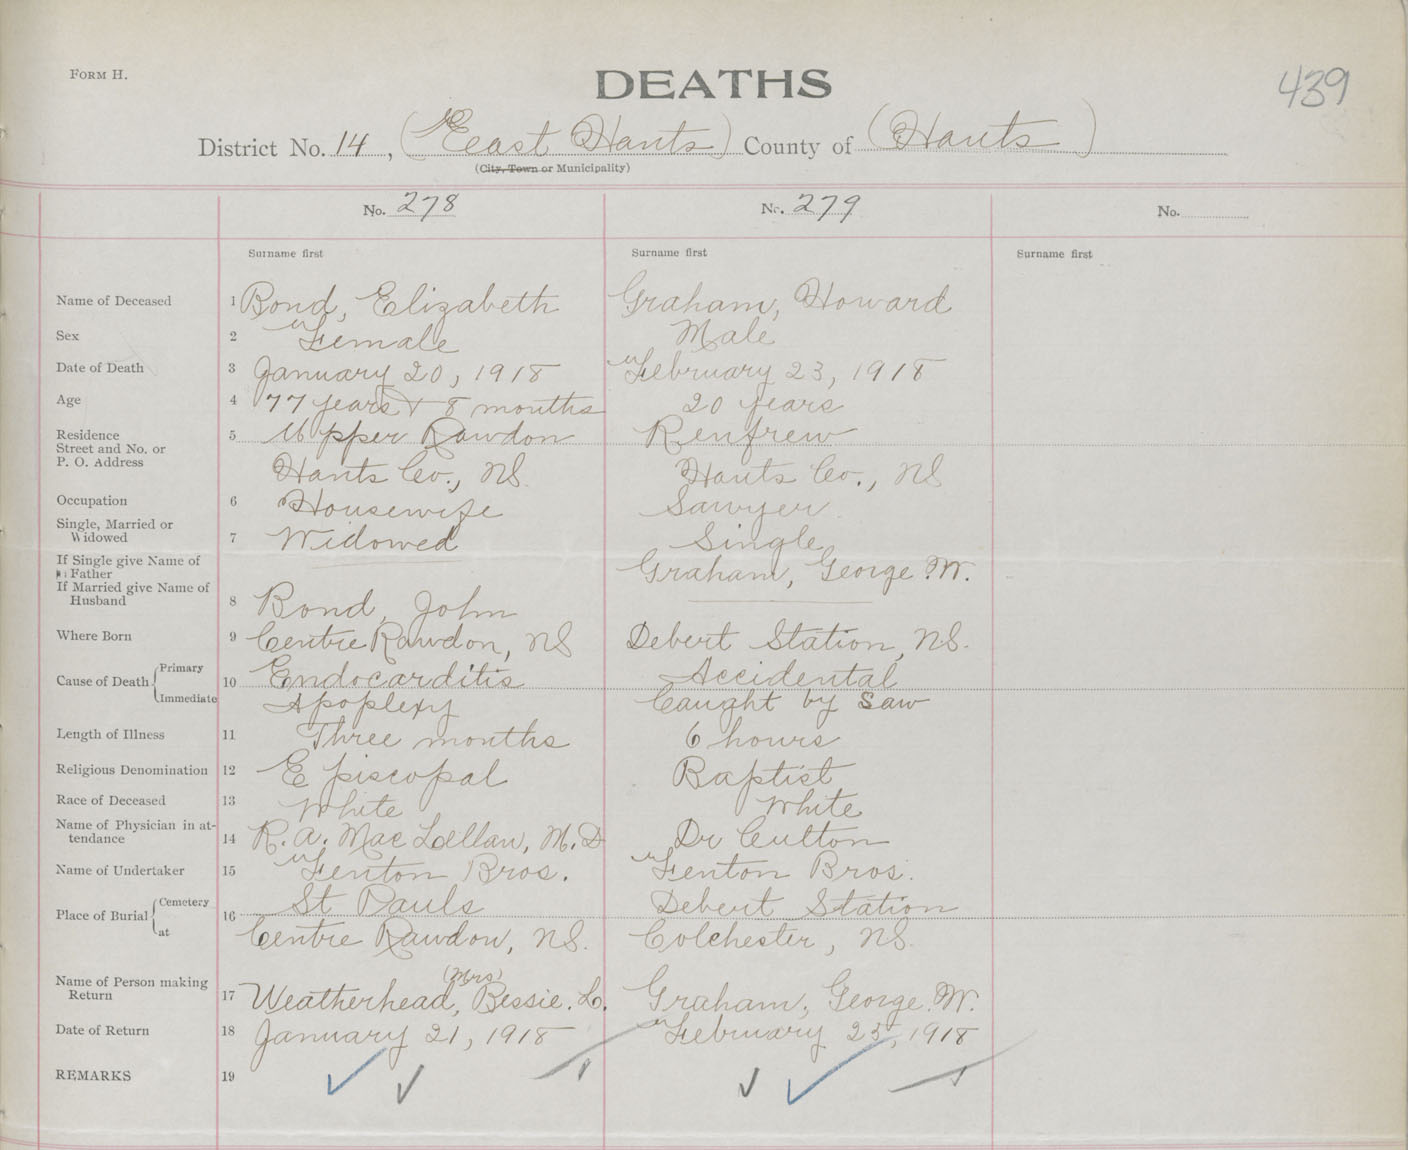 FORM H.
DEATHS
439
District No. 14, (East Hants) County of (Hants)
(City, Town or Municipality)
No. 278 No. 279 No.
Surname first Surname first Surname first
Name of Deceased 1 Bond, Elizabeth Graham, Howard
Sex 2 Female Male
Date of Death 3 January 20, 1918 February 23, 1918
Age 4 77 years & 8 months 20 years
Residence 5 Upper Rawdon Renfrew
Street and No. or
P. O. Address Hants Co., NS. Hants Co., NS
Occupation 6 Housewife Sawyer
Single, Married or
Widowed 7 Widowed Single
If Single give Name of
Father Graham, George W.
If Married give Name of
Husband 8 Bond, John
Where Born 9 Centre Rawdon, NS Debert Station, NS.
Cause of Death Primary 10 Endocarditis Accidental
Immediate Apoplexy Caught by Saw
Length of Illness 11 Three months 6 hours
Religious Denomination 12 Episcopal Baptist
Race of Deceased 13 White White
Name of Physician in at-
tendance 14 R. A. MacLellan, M.D Dr Culton
Name of Undertaker 15 Fenton Bros. Fenton Bros.
Place of Burial Cemetery 16 St Pauls Debert Station
at Centre Rawdon, NS. Colchester, NS.
Name of Person making
(Mrs)
Return 17 Weatherhead, Bessie. L. Graham, George. W.
Date of Return 18 January 21, 1918 February 25, 1918
REMARKS 19